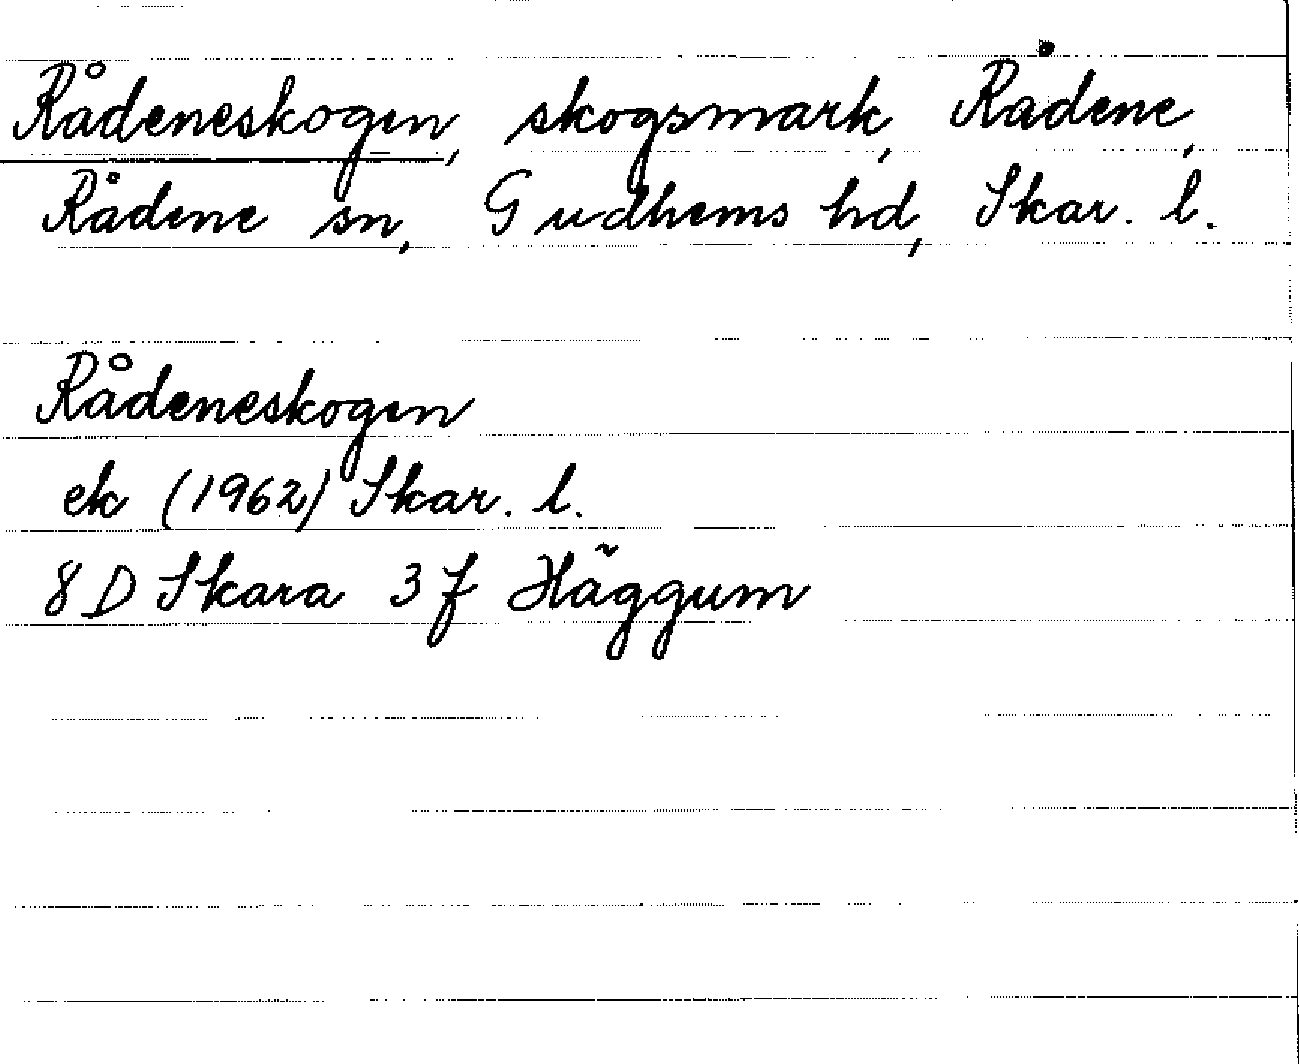 Rådeneskogen, skogsmark, Rådene,
Rådene sn, Gudhems hd, Skar. l.
Rådeneskogen
ek (1962) Skar. l.
8D Skara 3f Häggum